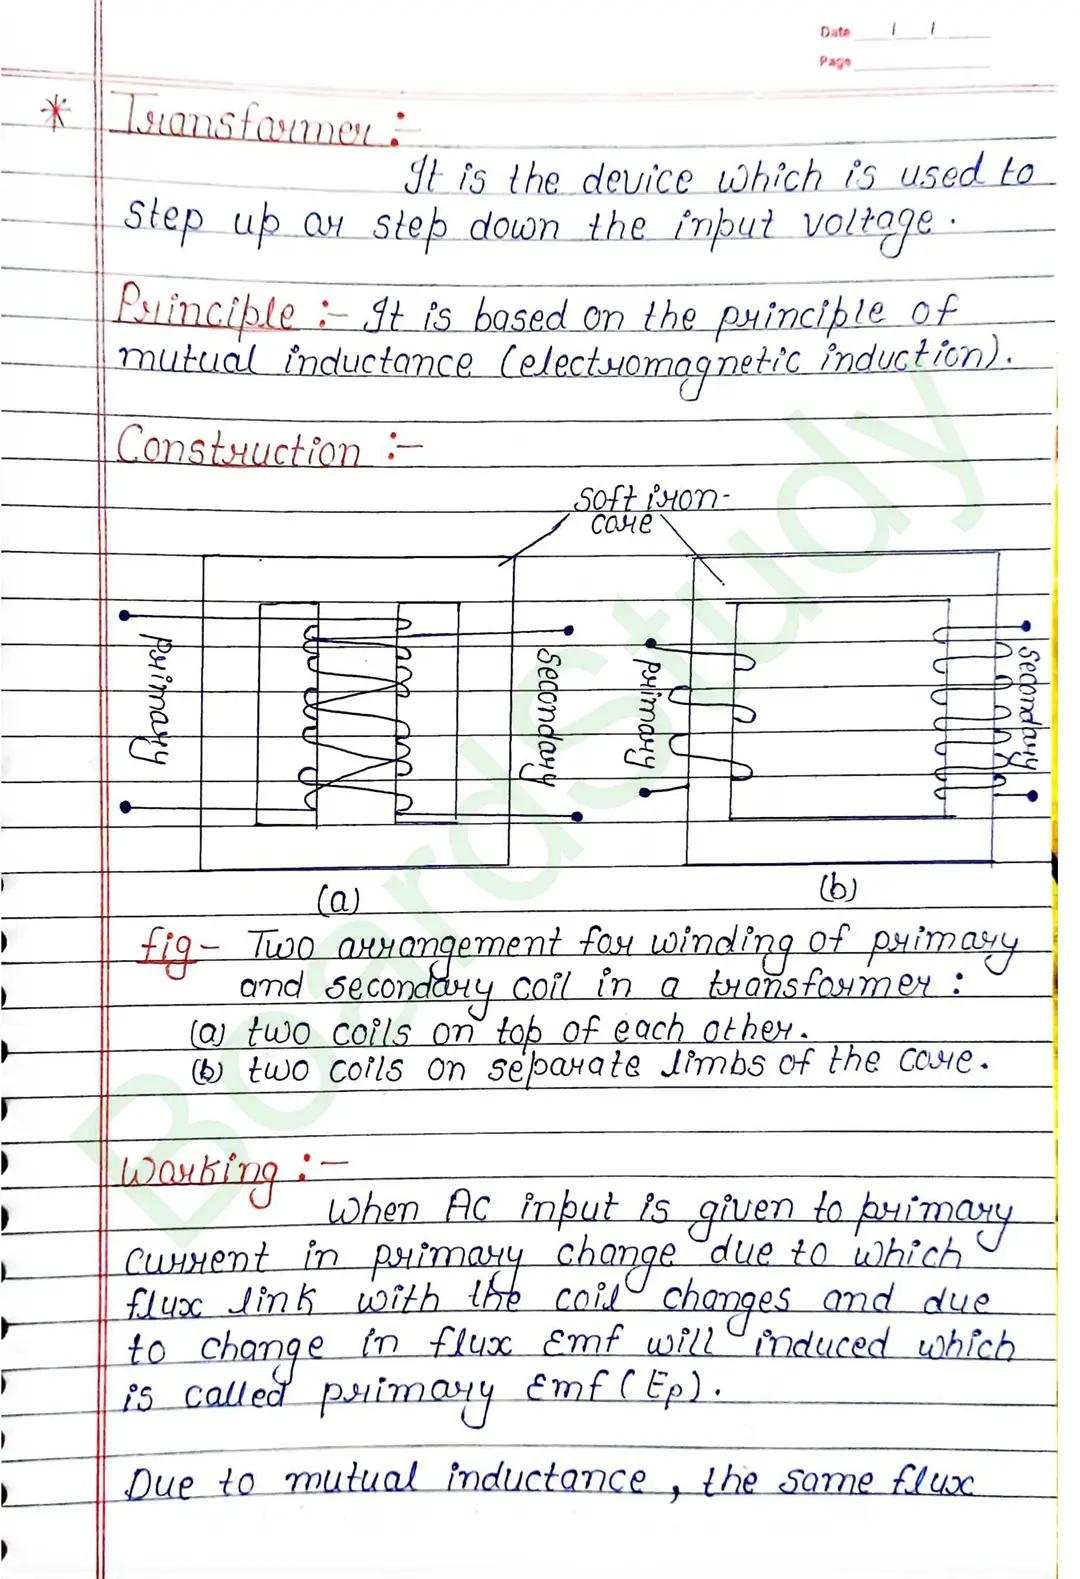 Date / /
Page
* Transformer :-
It is the device which is used to
step up or step down the input voltage.
Principle :- It is based on the principle of
mutual inductance (electromagnetic induction).
Construction :-
soft iron-
core
Primary
Secondary
Primary
Secondary
(a)
(b)
fig - Two arrangement for winding of primary
and secondary coil in a transformer :
(a) two coils on top of each other.
(b) two coils on separate limbs of the core.
Working :-
When AC input is given to primary
current in primary change due to which
flux link with the coil changes and due
to change in flux Emf will induced which
is called primary Emf (Ep).
Due to mutual inductance, the same flux
BoardStudy